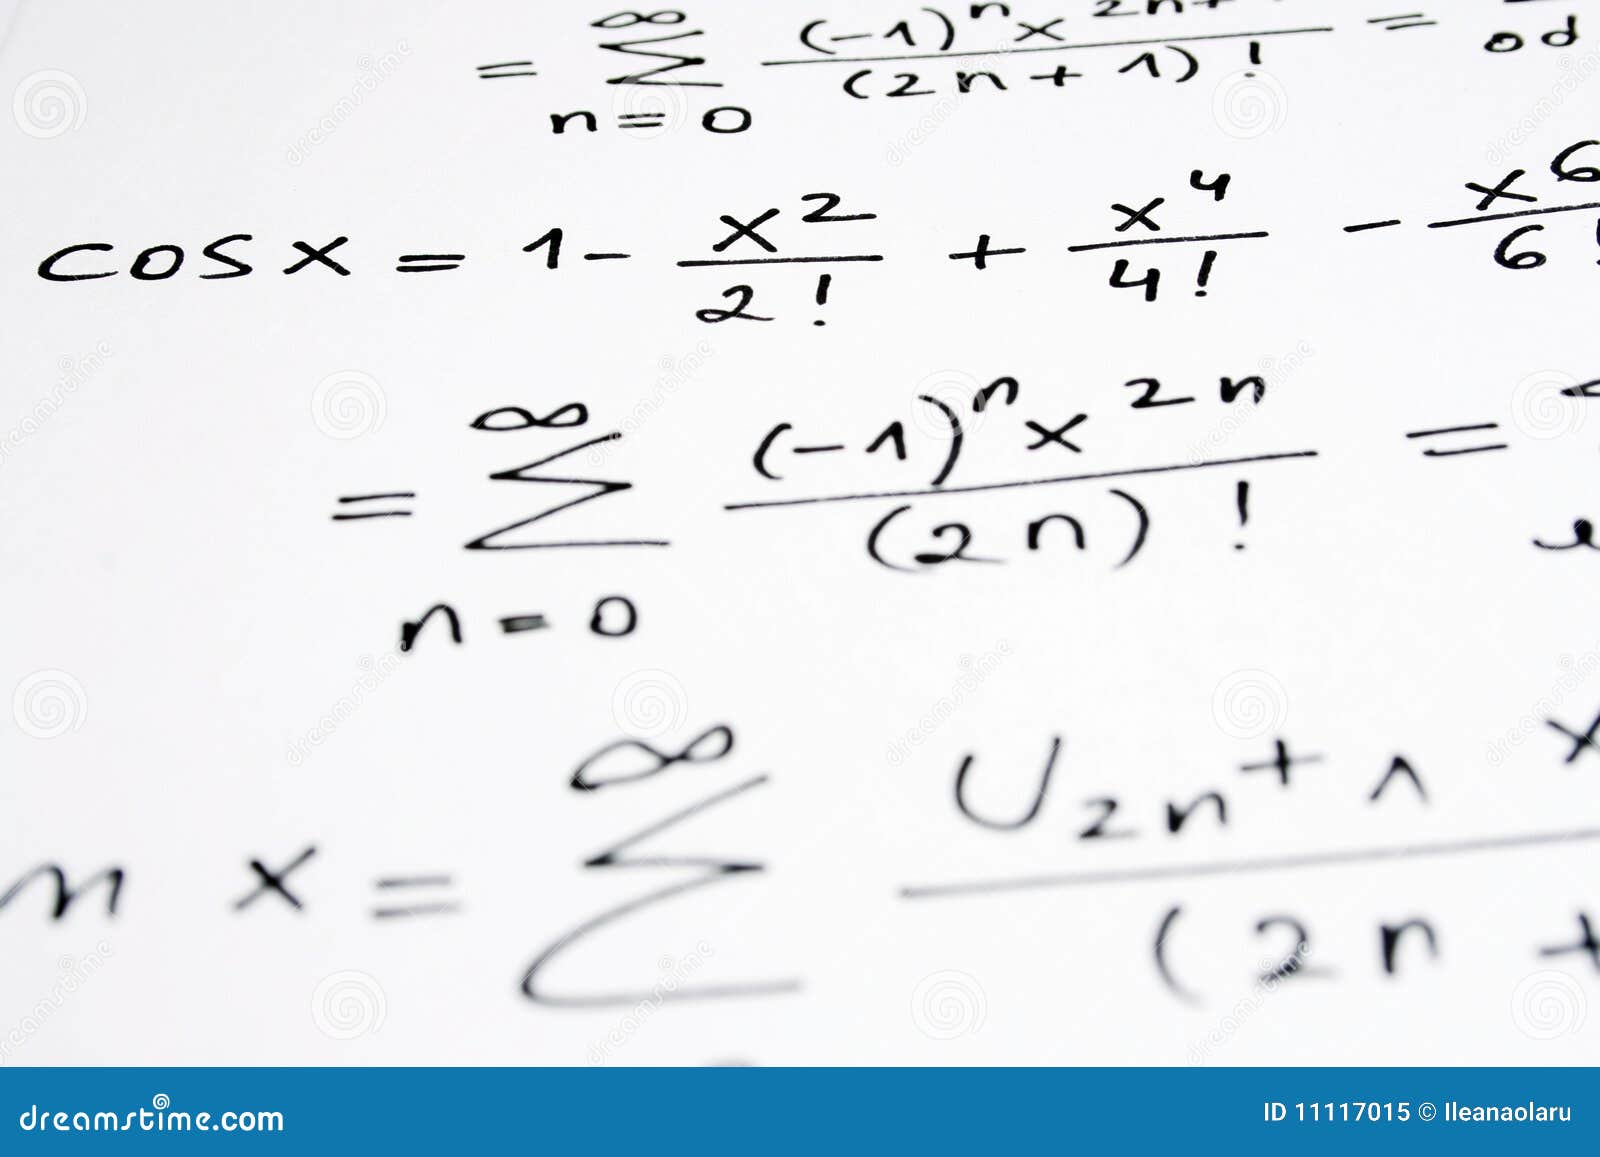 = ∞ ∑ n = 0 (-1)^n x^2n+ / (2n + 1)! = od
cos x = 1 - x^2 / 2! + x^4 / 4! - x^6 / 6!
= ∞ ∑ n = 0 (-1)^n x^2n / (2n)! =
n x = ∞ ∑ U_2n+1 x / (2n +
dreamstime.com
ID 11117015 © Ileanaolaru